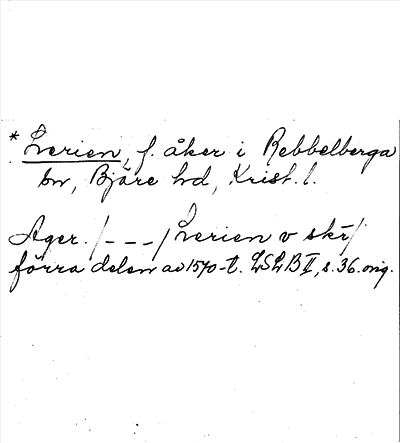 * Lverien, f. åker i Rebbelberga
sn, Bjäre hd, Krist. l.
Ager. /---/ Lverien v skr/
förra delen av 1570-t. LSLB II, s. 36. orig.